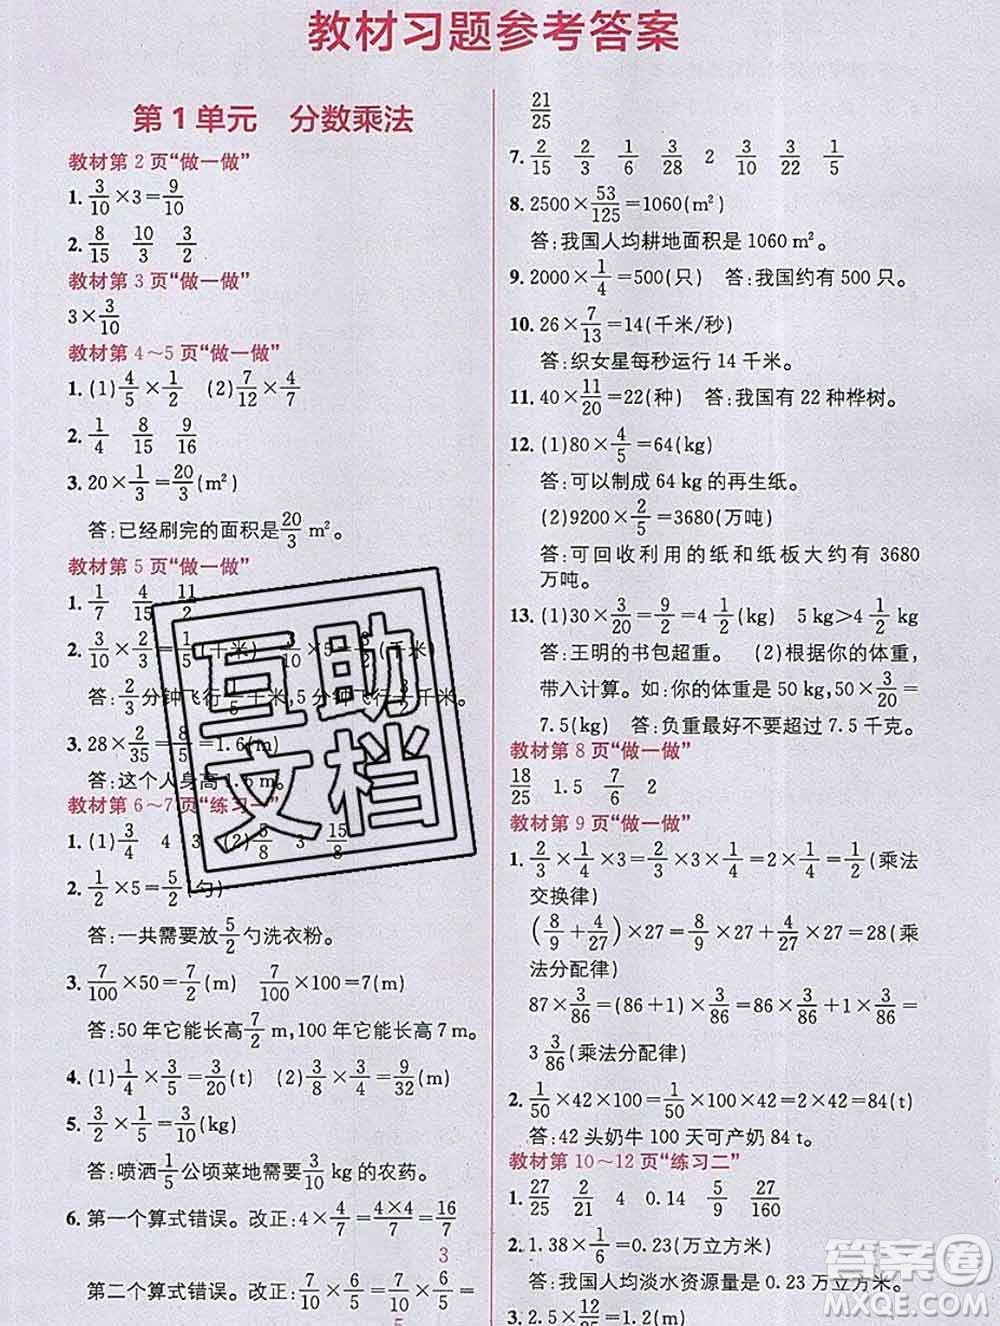 教材习题参考答案
第1单元 分数乘法
教材第2页“做一做”
1. 3/10×3=9/10
2. 8/15 10/3 3/2
教材第3页“做一做”
3×3/10
教材第4～5页“做一做”
1. (1)4/5×1/2 (2)7/12×4/7
2. 1/4 8/15 9/16
3. 20×1/3=20/3(m²)
答:已经刷完的面积是20/3 m²。
教材第5页“做一做”
1. 1/7 4/15 11/2
2. 3/10×2/3=1/5(千米) 3/10×5=
答:2/3分钟飞行1/5千米,5分钟飞行 千米。
3. 28×2/35=8/5=1.6(m)
答:这个人身高1.6 m。
教材第6～7页“练习一”
1. (1)3/4 4 3 (2) /8 3 15/8
2. 1/2×5=5/2(勺)
答:一共需要放5/2勺洗衣粉。
3. 7/100×50=7/2(m) 7/100×100=7(m)
答:50年它能长高7/2 m,100年它能长高7 m。
4. (1)1/4×3/5=3/20(t) (2)3/8×3/4=9/32(m)
5. 3/2×1/5=3/10(kg)
答:喷洒1/5公顷菜地需要3/10 kg的农药。
6. 第一个算式错误。改正:4×4/7=4×4/7=16/7
3
第二个算式错误。改正:
5
21/25
7. 2/15 2/3 1/6 3/28 2 3/10 2/15 1/5
8. 2500×53/125=1060(m²)
答:我国人均耕地面积是1060 m²。
9. 2000×1/4=500(只) 答:我国约有500只。
10. 26×7/13=14(千米/秒)
答:织女星每秒运行14千米。
11. 40×11/20=22(种) 答:我国有22种桦树。
12. (1)80×4/5=64(kg)
答:可以制成64 kg的再生纸。
(2)9200×2/5=3680(万吨)
答:可回收利用的纸和纸板大约有3680
万吨。
13. (1)30×3/20=9/2=4 1/2(kg) 5kg>4 1/2 kg
答:王明的书包超重。 (2)根据你的体重,
带入计算。如:你的体重是50 kg,50×3/20=
7.5(kg) 答:负重最好不要超过7.5千克。
教材第8页“做一做”
18/25 1.5 7/6 2
教材第9页“做一做”
1. 2/3×1/4×3=2/3×3×1/4=2×1/4=1/2(乘法
交换律)
(8/9+4/27)×27=8/9×27+4/27×27=28(乘
法分配律)
87×3/86=(86+1)×3/86=86×3/86+1×3/86=
3 3/86(乘法分配律)
2. 1/50×42×100=1/50×100×42=2×42=84(t)
答:42头奶牛100天可产奶84 t。
教材第10～12页“练习二”
1. 27/25 2/21 4 0.14 5/9 27/160
2. 1.38×1/6=0.23(万立方米)
答:我国人均淡水资源量是0.23万立方米。
3. 2.5×12/25=1.2(m)
互助
文档
答案圈
MXQE.COM